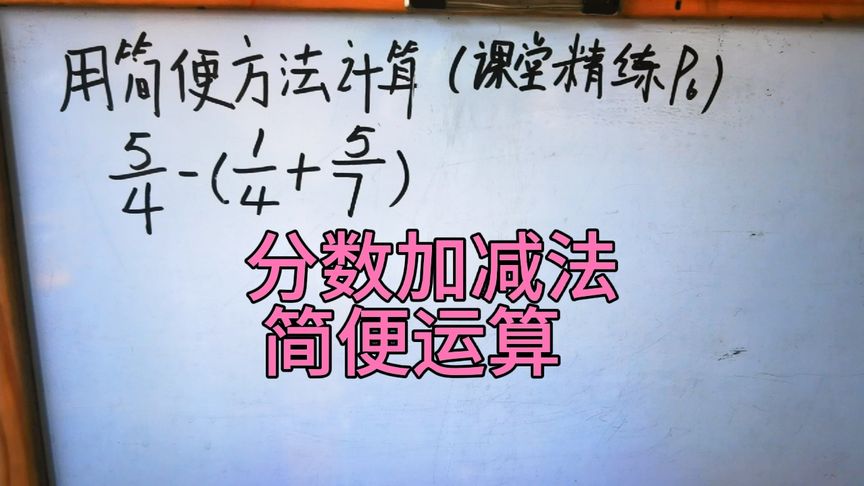 用简便方法计算(课堂精练P₆)
5/4-(1/4+5/7)
分数加减法
简便运算